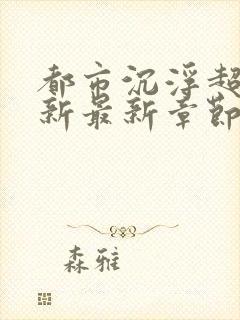 都市沉浮超
新最新章節
森雅